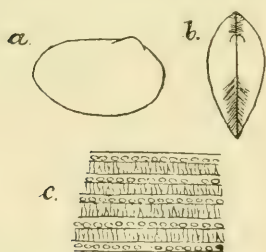 a.
b.
c.